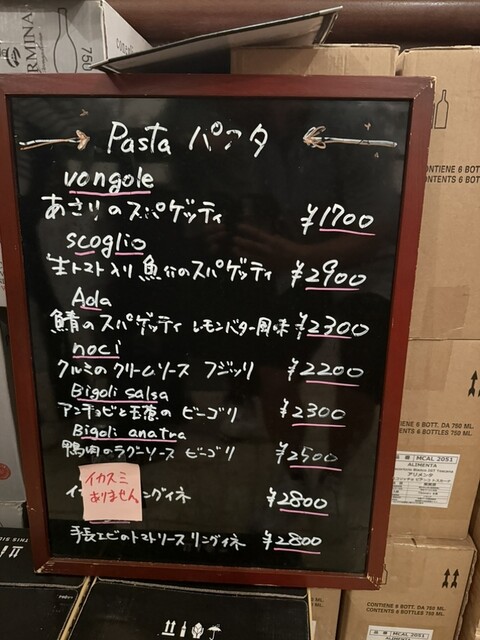 Pasta パスタ
vongole
あさりのスパゲッティ ¥1700
scoglio
生トマト入り魚介のスパゲッティ ¥2900
Ada
鯖のスパゲッティ レモンバター風味 ¥2300
noci
クルミのクリームソース フジッリ ¥2200
Bigoli salsa
アンチョビと玉葱の ビーゴリ ¥2300
Bigoli anatra
鴨肉のラグーソース ビーゴリ ¥2500
イカスミ
ありません
イ ングイネ ¥2800
手長エビのトマトソース リングイネ ¥2800
CONTIENE 6 BOTT. DA 750 ML.
CONTENTS 6 BOTTLES 750 ML.
MCAL 2051
ALIMENTA
アリメンタ
CONTIENE 6 BOTT. DA 750 ML.
CONTENTS 6 BOTTLES 750 ML.
MCAL 2051